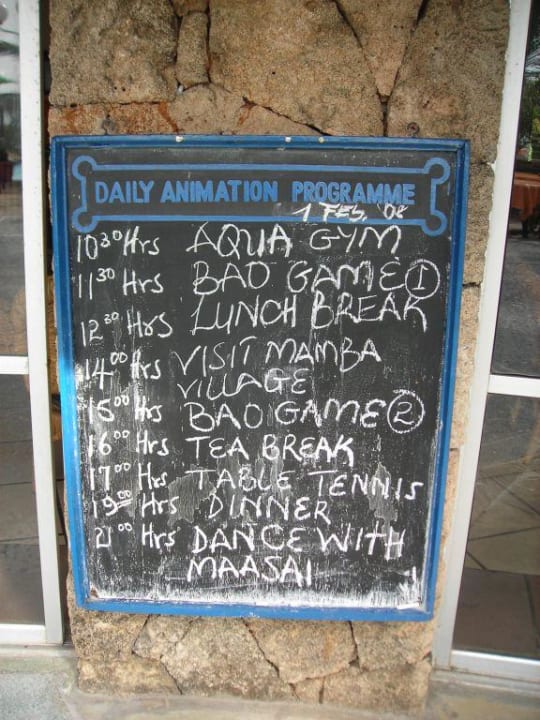 DAILY ANIMATION PROGRAMME
1 FEB. '08
10³⁰ Hrs AQUA GYM
11³⁰ Hrs BAO GAME ①
12³⁰ Hrs LUNCH BREAK
14⁰⁰ Hrs VISIT MAMBA
VILLAGE
15⁰⁰ Hrs BAO GAME ②
16⁰⁰ Hrs TEA BREAK
17⁰⁰ Hrs TABLE TENNIS
19⁰⁰ Hrs DINNER
21⁰⁰ Hrs DANCE WITH
MAASAI